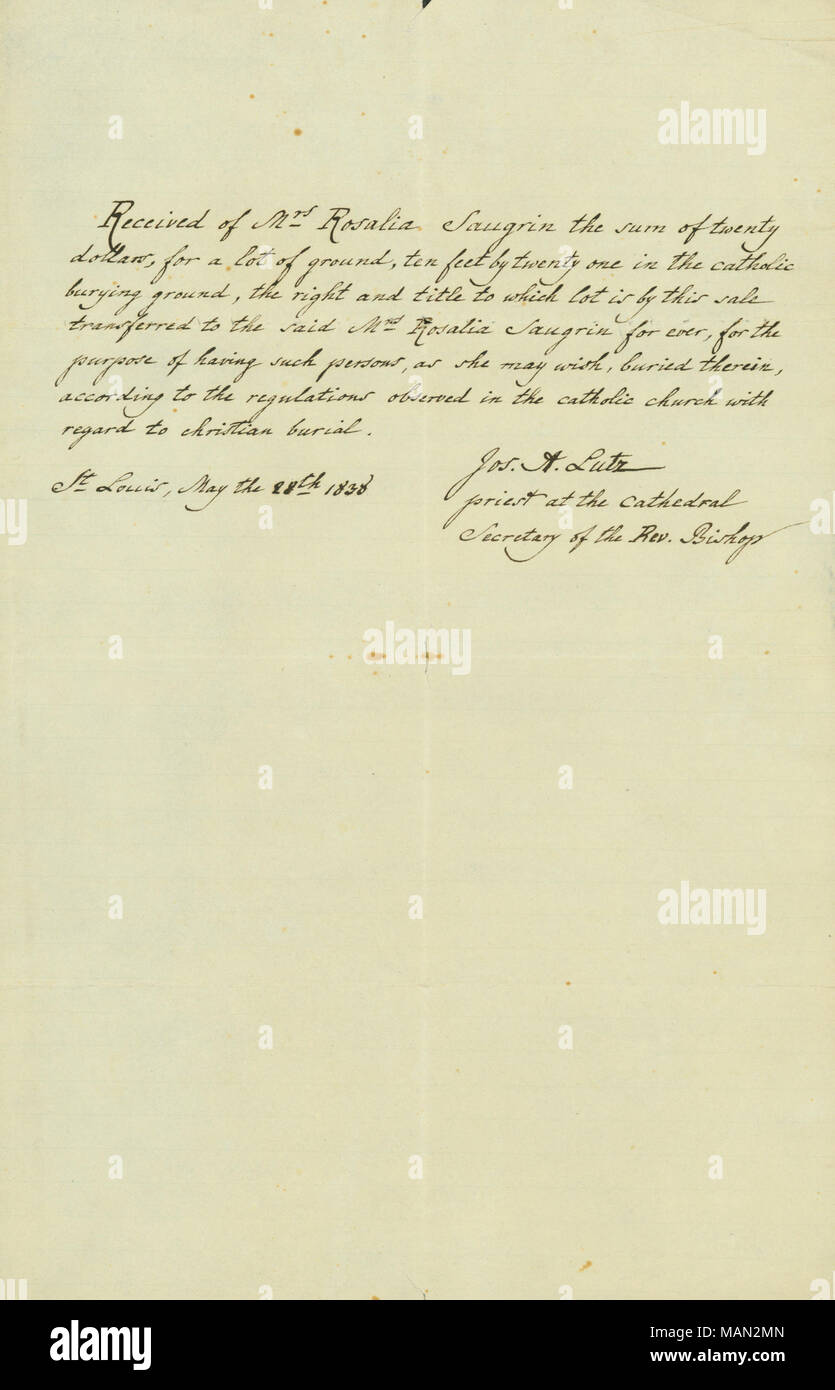 Received of Mrs Rosalia Saugrin the sum of twenty
dollars, for a lot of ground, ten feet by twenty one in the catholic
burying ground, the right and title to which lot is by this sale
transferred to the said Mrs Rosalia Saugrin for ever, for the
purpose of having such persons, as she may wish, buried therein,
according to the regulations observed in the catholic church with
regard to christian burial.
Jos. A. Lutz
St Louis, May the 28th 1838
priest at the cathedral
Secretary of the Rev. Bishop
alamy
alamy
alamy
a alamy
Image ID: MAN2MN
www.alamy.com